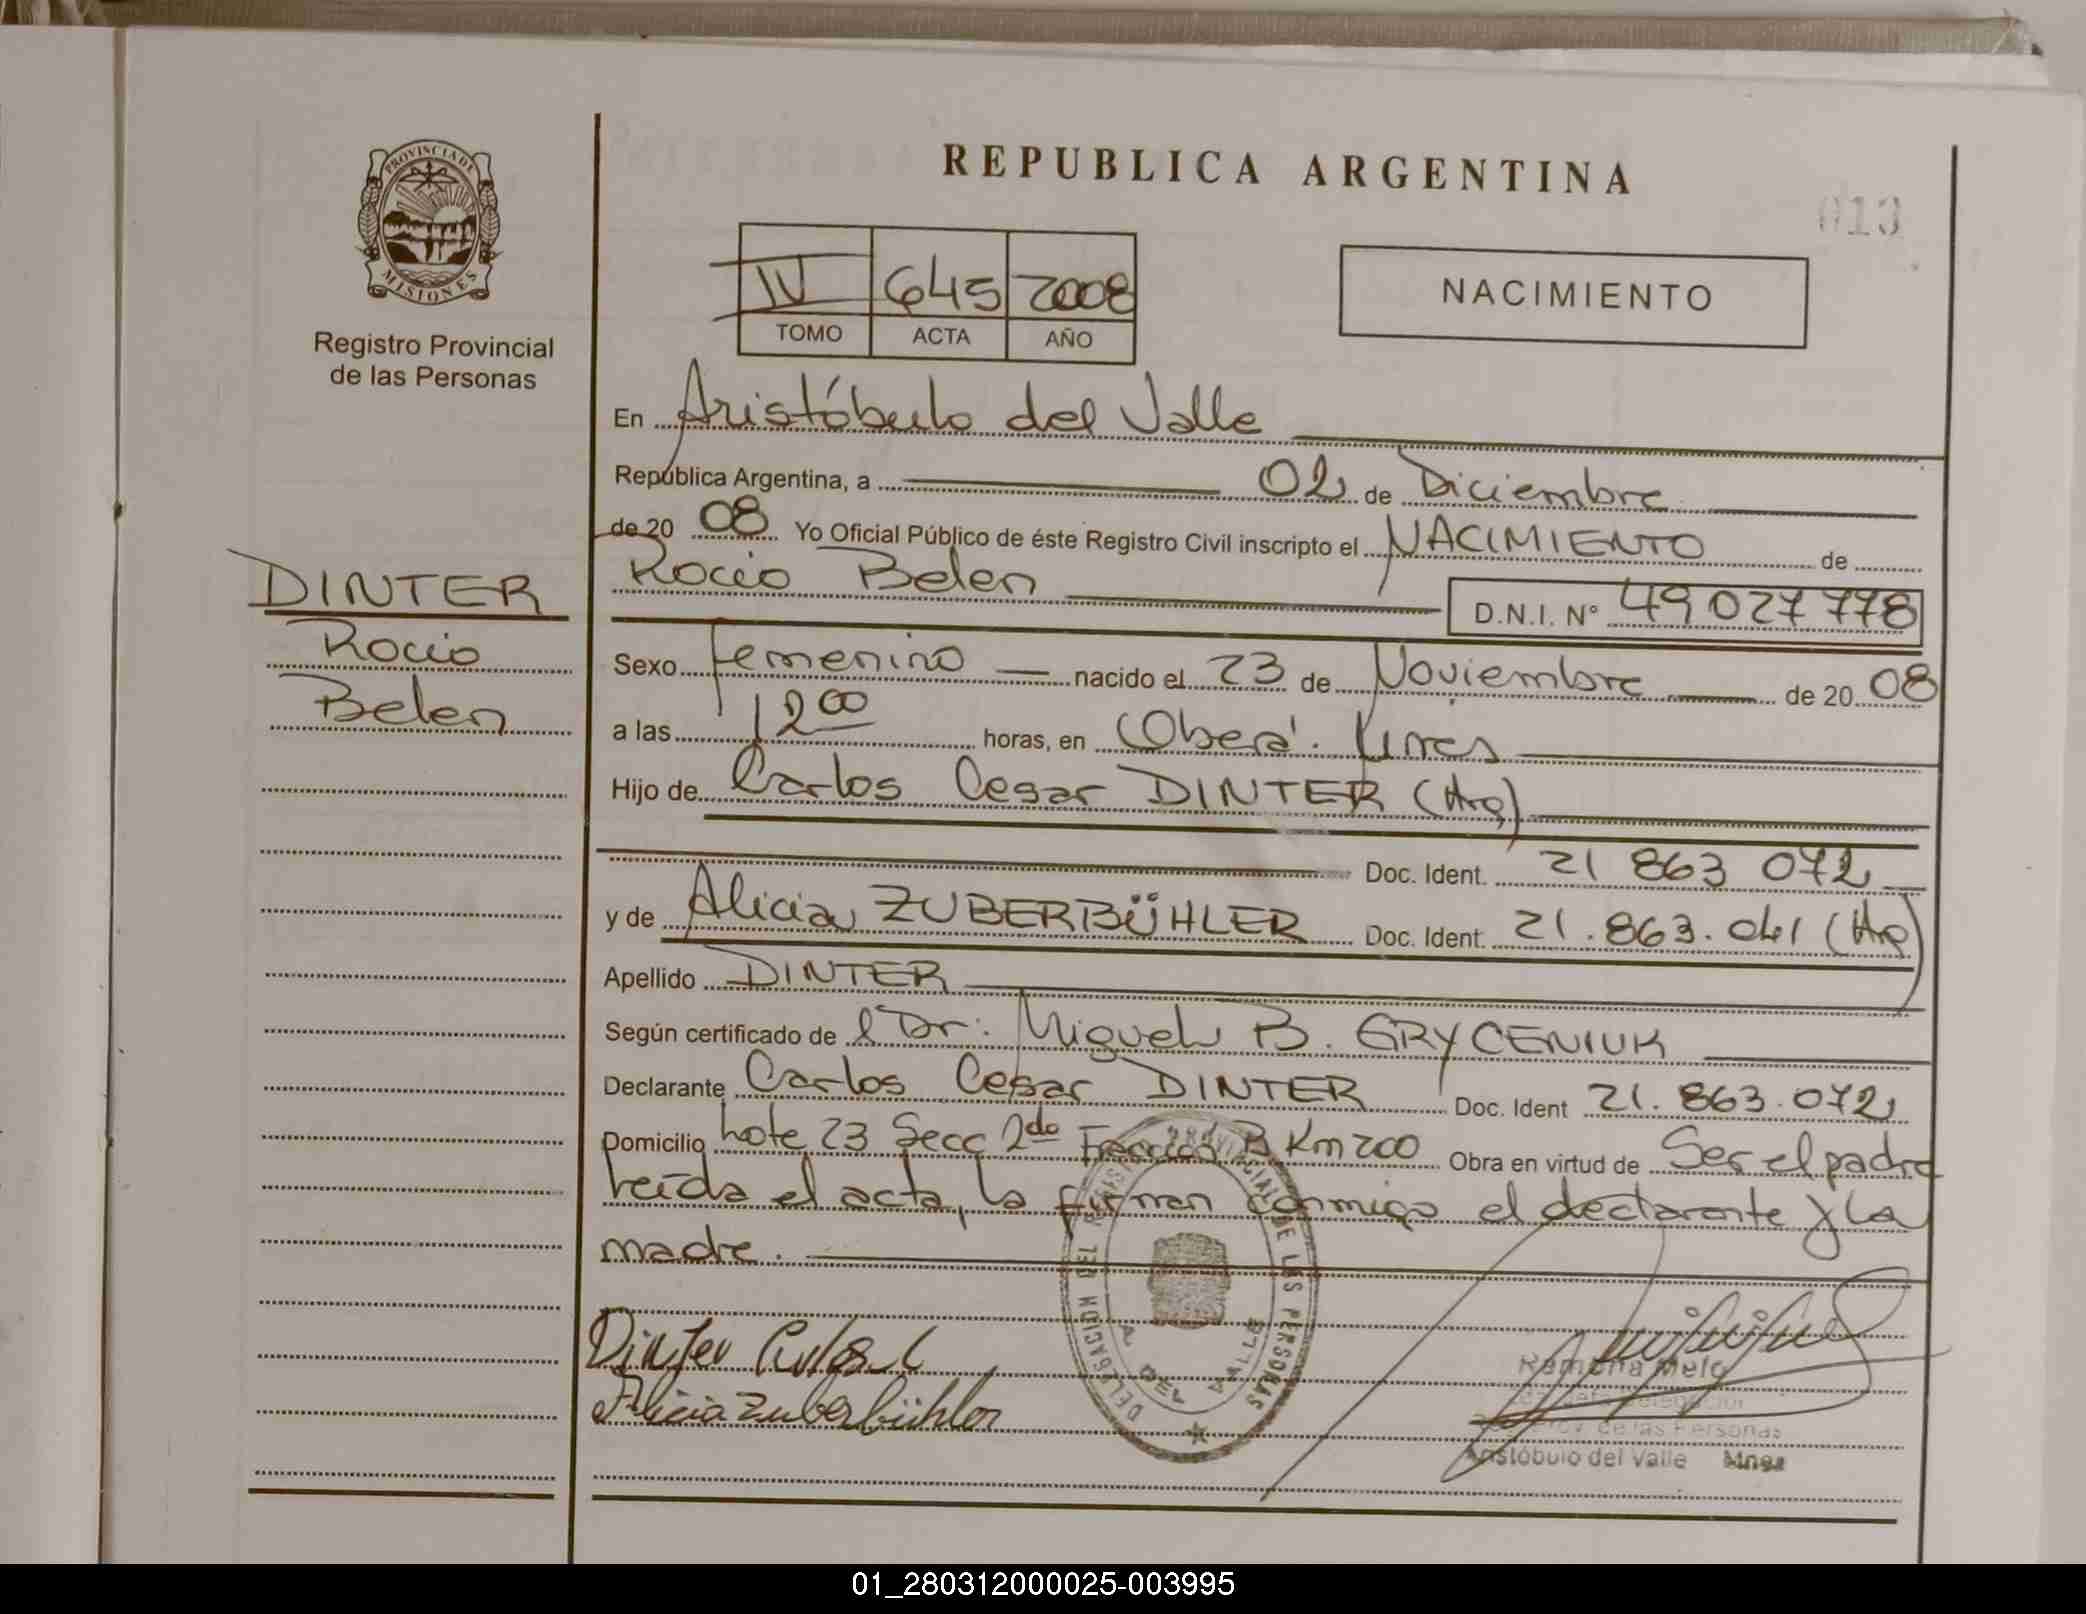 PROVINCIA DE
MISIONES
Registro Provincial
de las Personas
DINTER
Rocio
Belen
REPUBLICA ARGENTINA
013
IV 645 2008
TOMO ACTA AÑO
NACIMIENTO
En Aristóbulo del Valle
República Argentina, a 02 de Diciembre
de 20 08 Yo Oficial Público de éste Registro Civil inscripto el NACIMIENTO de
Rocio Belen D.N.I. Nº 49 027 778
Sexo Femenino nacido el 23 de Noviembre de 20 08
a las 12 00 horas, en Oberá. Mnes
Hijo de Carlos Cesar DINTER (Arg)
Doc. Ident. 21 863 072
y de Alicia ZUBERBÜHLER Doc. Ident. 21.863.041 (Arg)
Apellido DINTER
Según certificado de l Dr: Miguel B. GRYCENIUK
Declarante Carlos Cesar DINTER Doc. Ident 21.863.072
Domicilio Lote 23 Secc 2do Fracción B Km 200 Obra en virtud de Ser el padre
Leída el acta, la firman conmigo el declarante y la
madre.
DELEGACION DEL REGISTRO PROVINCIAL DE LAS PERSONAS
A DEL VALLE
Dinter Carlos C
Alicia Zuberbühler
Ramona Melo
Delegación
de las Personas
Aristóbulo del Valle Mnes
01_280312000025-003995